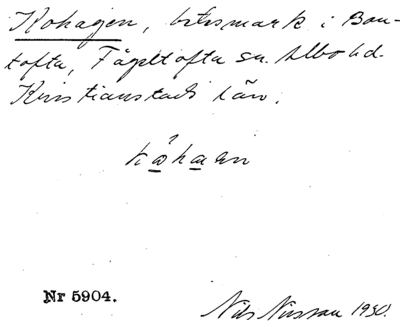 Kohagen, betesmark i Bon-
tofta, Fågeltofta sn. Albo hd.
Kristianstads län.
kåhaen
Nr 5904.
Nils Nilsson 1930.